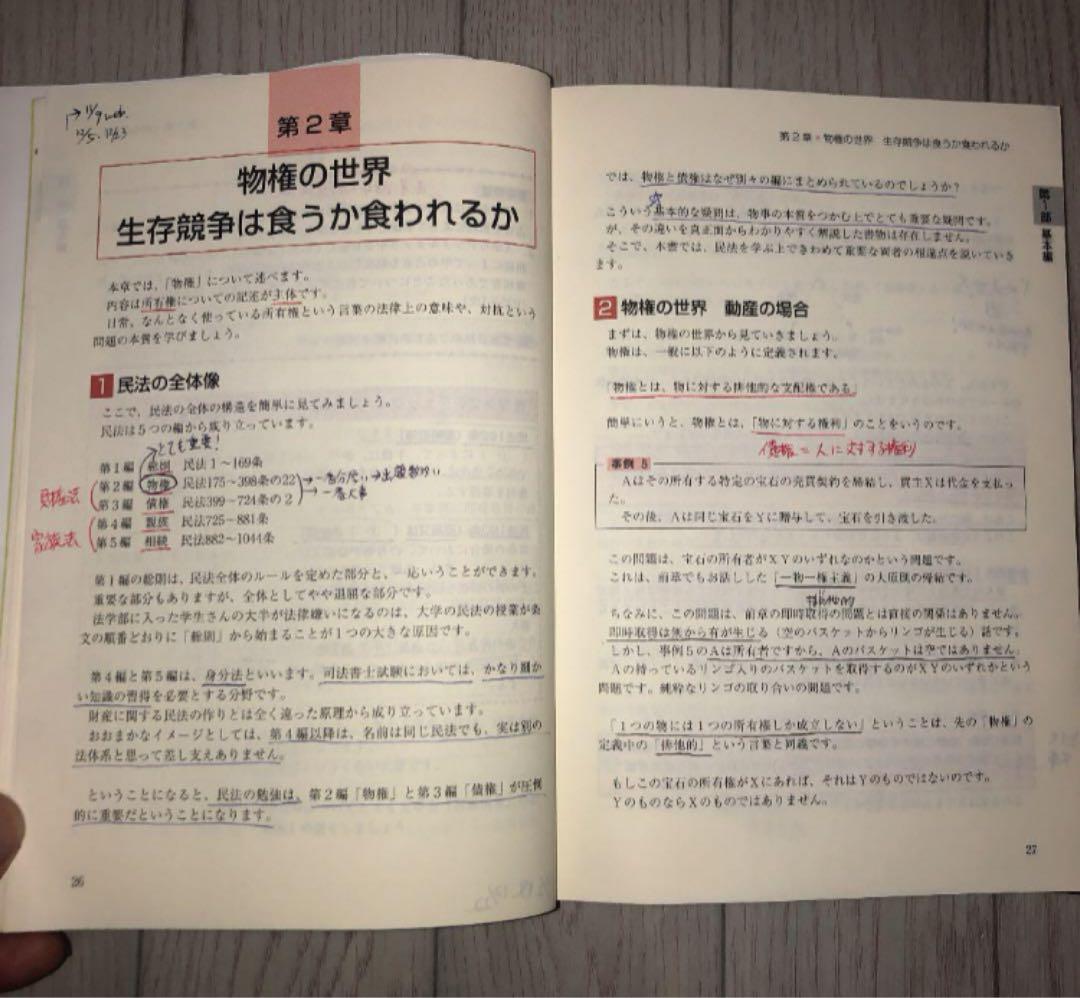 →11/9 web.
12/5. 12/23
第2章
物権の世界
生存競争は食うか食われるか
本章では、「物権」について述べます。
内容は所有権についての記述が主体です。
日常、なんとなく使っている所有権という言葉の法律上の意味や、対抗という
問題の本質を学びましょう。
1 民法の全体像
ここで、民法の全体の構造を簡単に見てみましょう。
民法は5つの編から成り立っています。
→とても重要!
第1編 総則 民法1〜169条
第2編 物権 民法175〜398条の22 →一番分厚い→出題数多い
財産法
第3編 債権 民法399〜724条の2 →一番大事
第4編 親族 民法725〜881条
家族法
第5編 相続 民法882〜1044条
第1編の総則は、民法全体のルールを定めた部分と、一応いうことができます。
重要な部分もありますが、全体としてやや退屈な部分です。
法学部に入った学生さんの大半が法律嫌いになるのは、大学の民法の授業が条
文の順番どおりに「総則」から始まることが1つの大きな原因です。
第4編と第5編は、身分法といいます。司法書士試験においては、かなり細か
い知識の習得を必要とする分野です。
財産に関する民法の作りとは全く違った原理から成り立っています。
おおまかなイメージとしては、第4編以降は、名前は同じ民法でも、実は別の
法体系と思って差し支えありません。
ということになると、民法の勉強は、第2編「物権」と第3編「債権」が圧倒
的に重要だということになります。
26
第2章・物権の世界 生存競争は食うか食われるか
第1部 基本編
では、物権と債権はなぜ別々の編にまとめられているのでしょうか?
こういう基本的な疑問は、物事の本質をつかむ上でとても重要な疑問です。
が、その違いを真正面からわかりやすく解説した書物は存在しません。
そこで、本書では、民法を学ぶ上できわめて重要な両者の相違点を説いていき
ます。
2 物権の世界 動産の場合
まずは、物権の世界から見ていきましょう。
物権は、一般に以下のように定義されます。
「物権とは、物に対する排他的な支配権である」
簡単にいうと、物権とは、「物に対する権利」のことをいうのです。
債権=人に対する権利
事例 5
Aはその所有する特定の宝石の売買契約を締結し、買主Xは代金を支払っ
た。
その後、Aは同じ宝石をYに贈与して、宝石を引き渡した。
この問題は、宝石の所有者がXYのいずれなのかという問題です。
これは、前章でもお話しした「一物一権主義」の大原則の帰結です。
排他的
ちなみに、この問題は、前章の即時取得の問題とは直接の関係はありません。
即時取得は無から有が生じる(空のバスケットからリンゴが生じる)話です。
しかし、事例5のAは所有者ですから、Aのバスケットは空ではありません。
Aの持っているリンゴ入りのバスケットを取得するのがXYのいずれかという
問題です。純粋なリンゴの取り合いの問題です。
「1つの物には1つの所有権しか成立しない」ということは、先の「物権」の
定義中の「排他的」という言葉と同義です。
もしこの宝石の所有権がXにあれば、それはYのものではないのです。
YのものならXのものではありません。
27